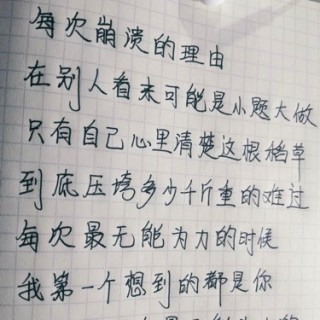 每次崩溃的理由
在别人看来可能是小题大做
只有自己心里清楚这根稻草
到底压垮多少千斤重的难过
每次最无能为力的时候
我第一个想到的都是你